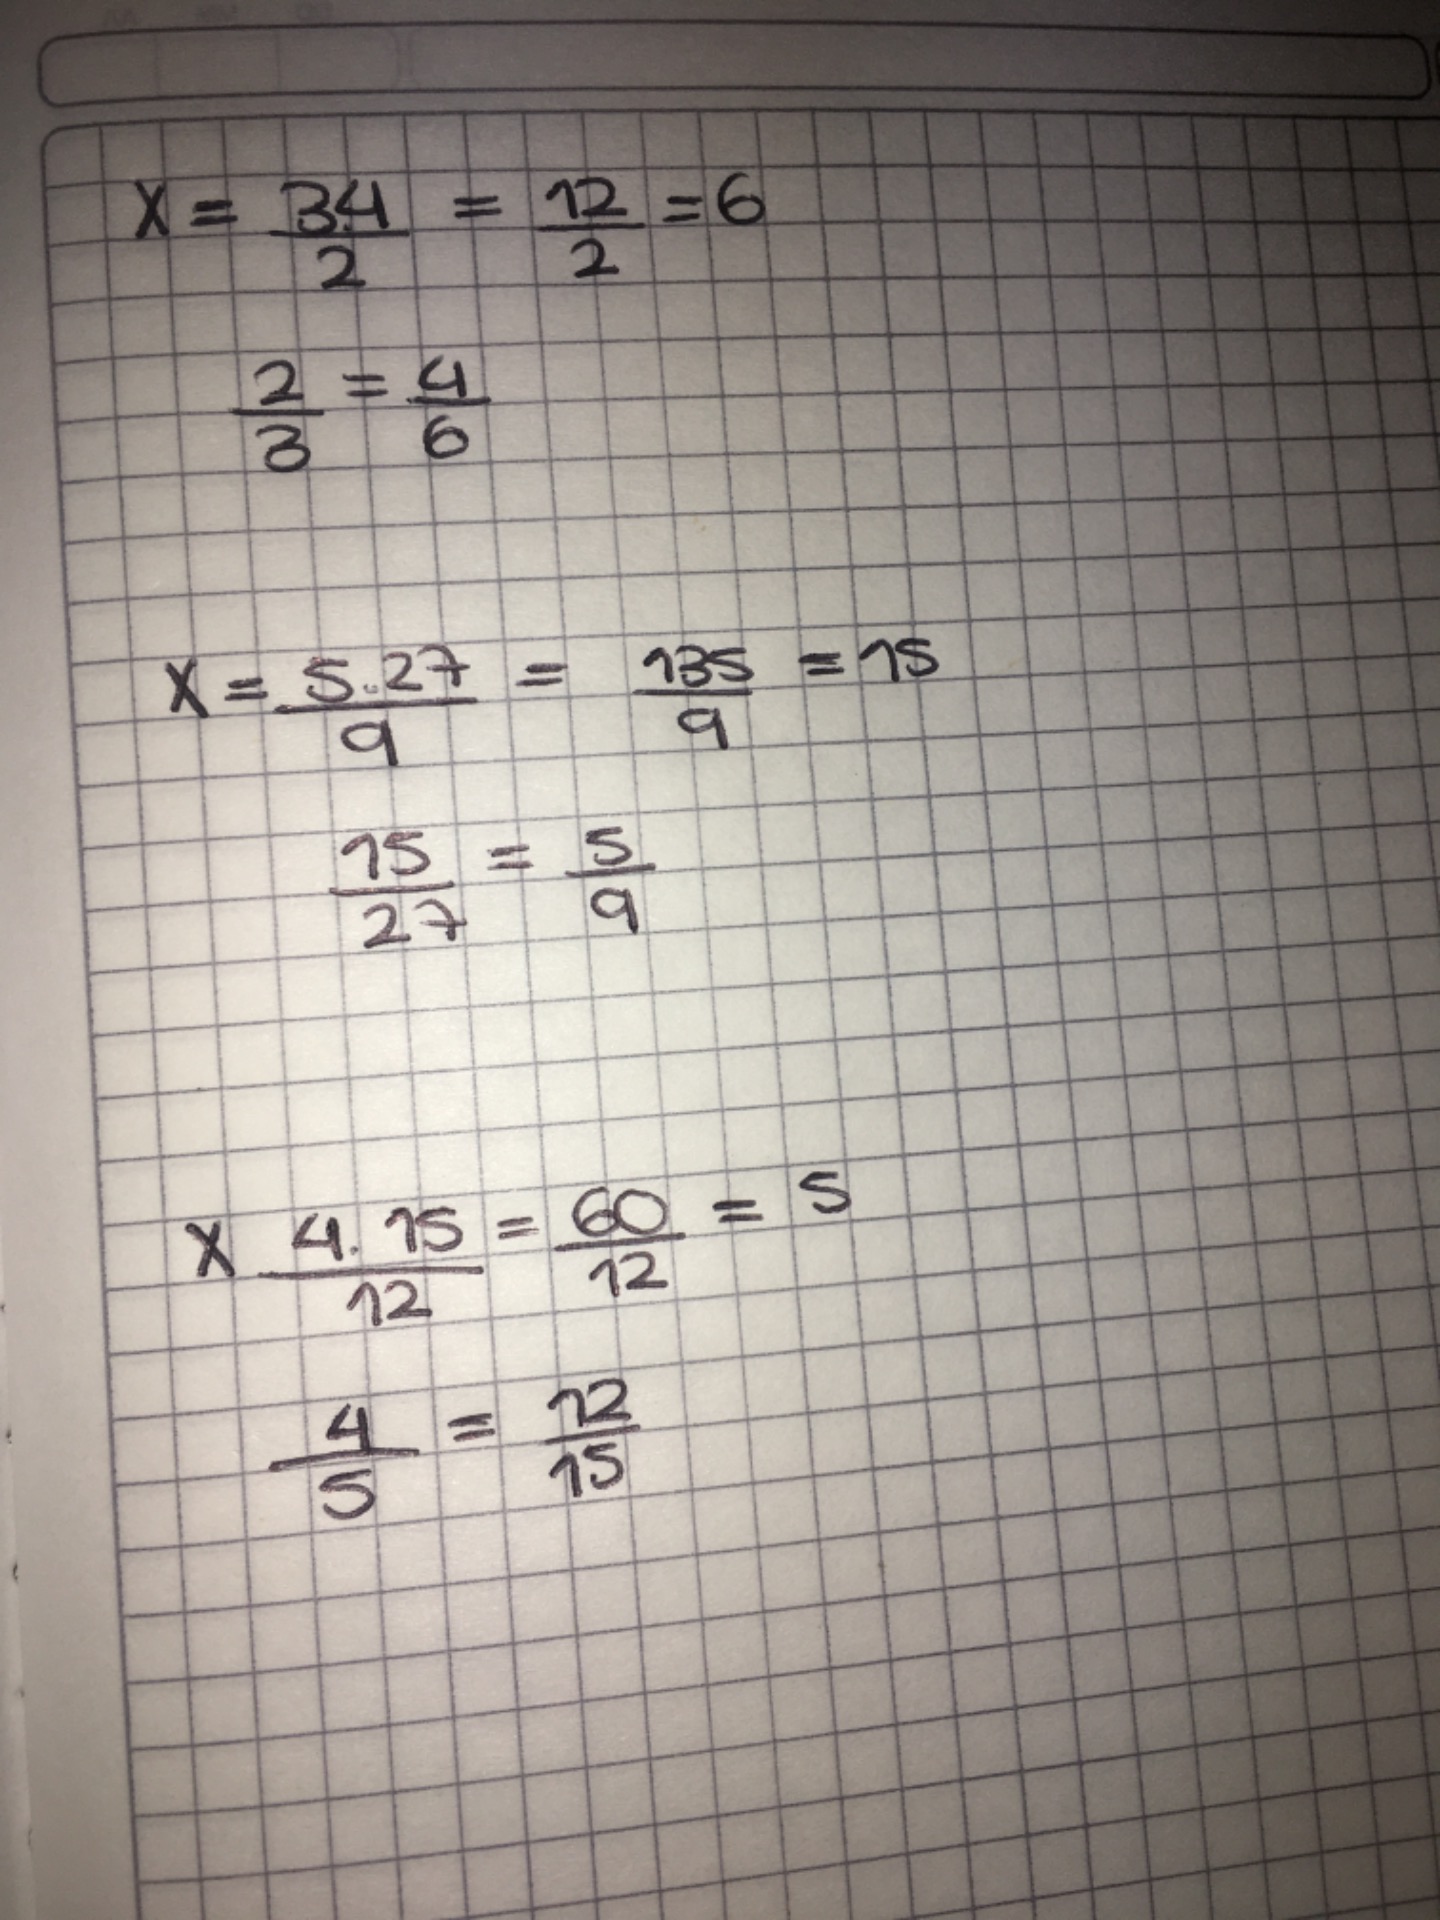 X = 3.4/2 = 12/2 = 6
2/3 = 4/6
X = 5.27/9 = 135/9 = 15
15/27 = 5/9
X 4.15/12 = 60/12 = 5
4/5 = 12/15